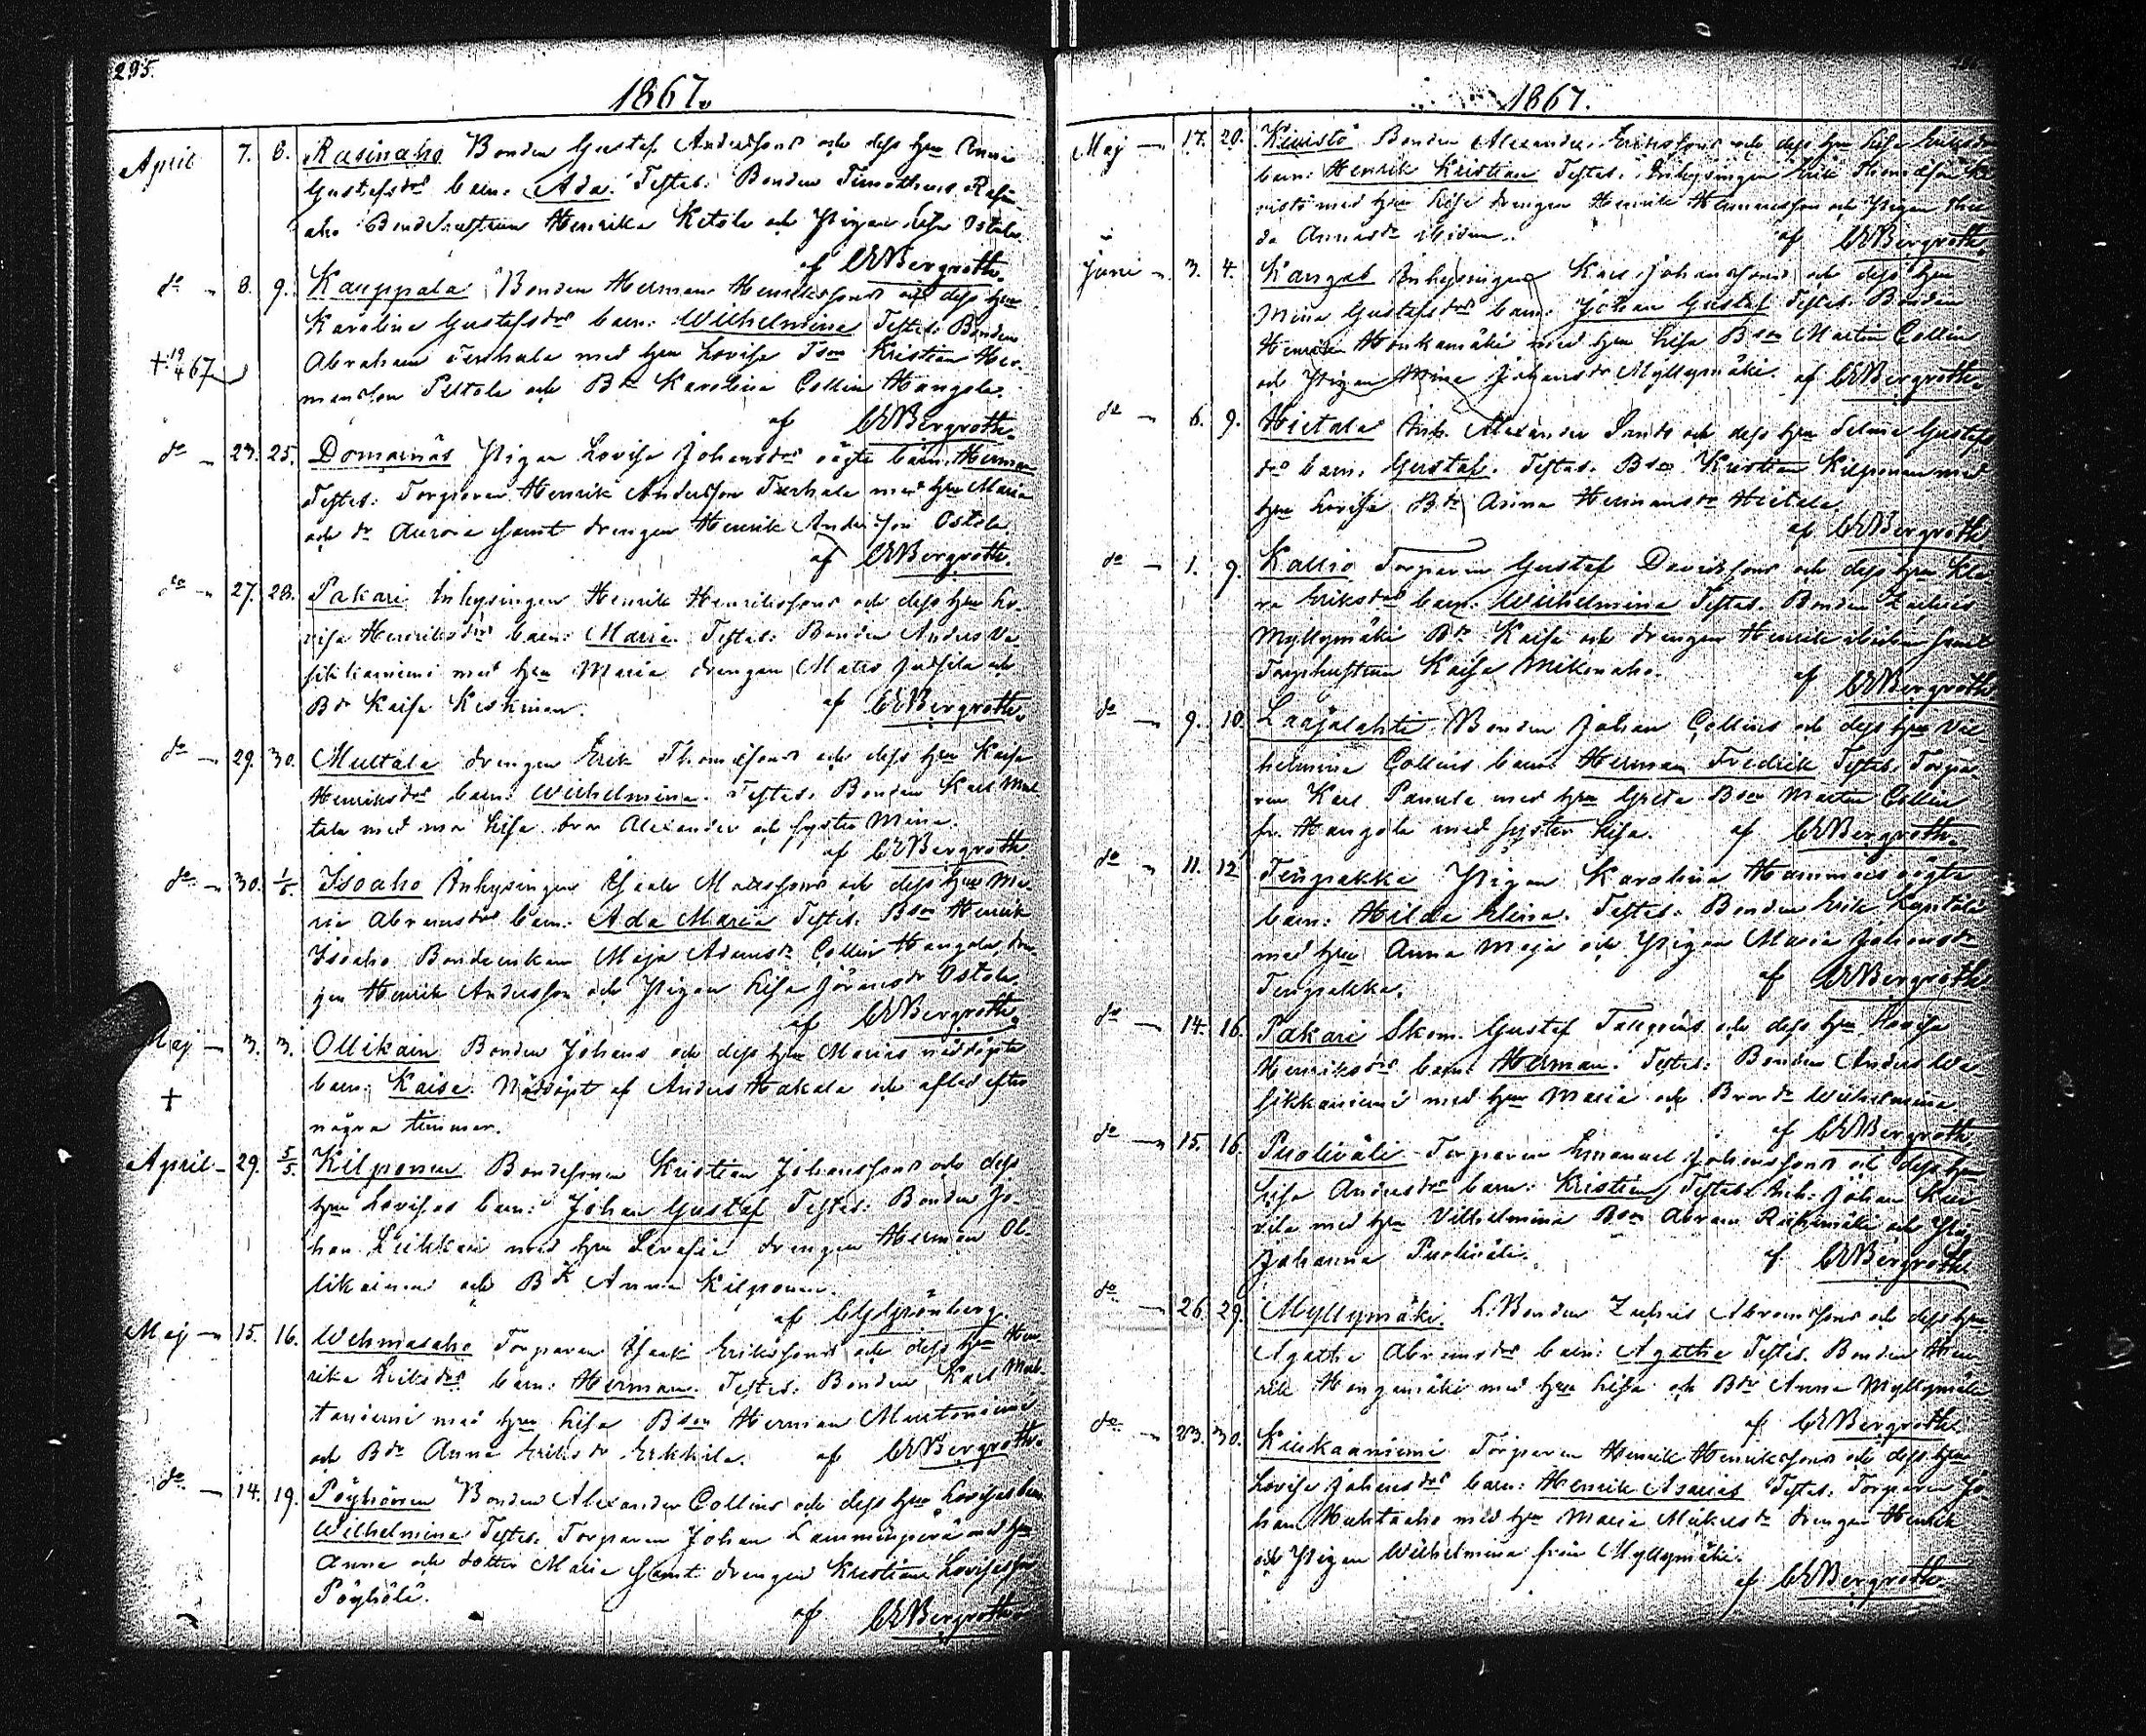 295.
1867.
April 7. 8. Rasinaho Bonden Gustaf Anderssons och dess hru Anna
Gustafsdrs barn: Ada. Testes: Bonden Timotheus Rasin
aho Bondehustrun Henrika Ketola och Pigan Lisa Ostola.
af CEBergroth.
do 8. 9. Kauppala Bonden Herman Henrikssons och dess hru
Karolina Gustafsdrs barn: Wilhelmina Testes Bonden
Abraham Turhala med hru Lovisa Tson Kristian Her-
+ 19/4 67
mansson Peltola och Bdr Karolina Collin Hangola.
af CEBergroth.
do 23. 25. Domarnäs Pigan Lovisa Johansdrs oägta barn. Herman
Testes: Torparen Henrik Andersson Turhala med hru Maria
och dr Aurora samt drengen Henrik Andersson Ostola
af CEBergroth.
do 27. 28. Pakari Inhysingen Henrik Henrikssons och dess hru Lo-
visa Henriksdrs barn: Maria. Testes: Bonden Anders Ve-
sikkaniemi med hru Maria drengen Matts Jussila och
Bdr Kaisa Keskinen.
af CEBergroth.
do 29. 30. Multala drengen Erik Thomassons och dess hru Kaisa
Henriksdrs barn: Wilhelmina. Testes. Bonden Karl Mul
tala med mor Lisa bror Alexander och syster Mina.
af CEBergroth.
do 30. 1/5. Isoaho Inhysingen Isaak Matssons och dess hru Ma-
ria Abramsdrs barn: Ada Maria Testes. Bson Henrik
Isoaho Bondeenkan Maja Adamsdr Collin Hangola, dren-
gen Henrik Andersson och Pigan Lisa Göransdr Ostola.
af CEBergroth.
Maj 3. 3. Ollikain Bonden Johans och dess hru Marias nöddöpta
barn: Kaisa. Nöddöpt af Anders Hakala och afled efter
+
några timmar.
April 29. 5/5. Kilponen Bondesonen Kristian Johanssons och dess
hru Lovisas barn: Johan Gustaf Testes: Bonden Jo-
han Leikkari med hru Serafia drengen Herman Ol-
likainen och Bdr Anna Kilponen.
af CGGrönberg.
Maj 15. 16. Wehmasaho Torparen Isaak Erikssons och dess hru Hen-
rika Eriksdrs barn: Herman. Testes: Bonden Karl Mul-
taniemi med hru Lisa Bson Herman Multaniemi
och Bdr Anna Eriksdr Erkkilä. af CEBergroth.
do 14. 19. Pöyhönen Bonden Alexander Collins och dess hru Lovisas barn
Wilhelmina Testes. Torparen Johan Lamminperä med hru
Anna och dotter Maria samt drengen Kristian Lovisasson
Pöyhölä.
af CEBergroth.
1867.
Maj 17. 20. Kivistö Bonden Alexander Erikssons och dess hru Lisa Eriksdrs
barn: Henrik Kristian Testes: Inhysingen Erik Thomasson Ki
vistö med hru Lisa drengen Henrik Hermansson och Pigan
da Annasdr ibidem.
af CEBergroth.
Juni 3. 4. Kangas Inhysingen Karl Johanssons och dess hru
Mina Gustafsdrs barn: Johan Gustaf Testes. Bonden
Henrik Honkamäki med hru Lisa Bson Martin Collin
och Pigan Mina Johansdr Myllymäki. af CEBergroth.
do 6. 9. Hietala Inh. Alexander Sunds och dess hru Selma Gustafs
drs barn. Gustaf. Testes. Bson Kristian Kilponen med
hru Lovisa Bdr Anna Hermansdr Hietala
af CEBergroth.
do 1. 9. Kallio Torparen Gustaf Davidssons och dess hru Kla-
ra Eriksdrs barn: Wilhelmina Testes. Bonden Zachris
Myllymäki Bdr Kaisa och drengen Henrik ibidem samt
Torphustrun Kaisa Mikonaho.
af CEBergroth
do 9. 10. Laajalahti Bonden Johan Collins och dess hru Vil
helmina Collins barn: Herman Fredrik Testes Torpa-
ren Karl Panula med hru Greta Bson Martin Collin
fr. Hangola med syster Lisa. af CEBergroth.
do 11. 12. Tenpakka Pigan Karolina Hammars oägta
barn: Hilda Elina. Testes. Bonden Erik Lapitola
med hru Anna Maja och Pigan Maria Johansdr
Tenpakka.
af CEBergroth
do 14. 16. Pakari Skom. Gustaf Tallgrens och dess hru Lovisa
Henriksdrs barn: Herman. Testes: Bonden Anders We-
sikkaniemi med hru Maria och Bror dr Wilhelmina.
af CEBergroth.
do 15. 16. Puoliväli Torparen Emanuel Johanssons och dess hru
Lisa Andersdrs barn: Kristian Testes Inh: Johan
vila med hru Vilhelmina Bson Abram Riihimäki och Pig
Johanna Puoliväli.
af CEBergroth
do 26. 29. Myllymäki. L. Bonden Zachris Abramssons och dess hru
Agatha Abramsdrs barn: Agatha Testes. Bonden Hen-
rik Hongamäki med hru Lisa och Bdr Anna Myllymäki
af CEBergroth.
do 23. 30. Kiukaaniemi Torparen Henrik Henrikssons och dess hru
Lovisa Johansdrs barn: Henrik Asarias Testes. Torparen Jo-
han Huhtaaho med hru Maria Mickelsdr drengen Henrik
och Pigan Wilhelmina från Myllymäki.
af CEBergroth.